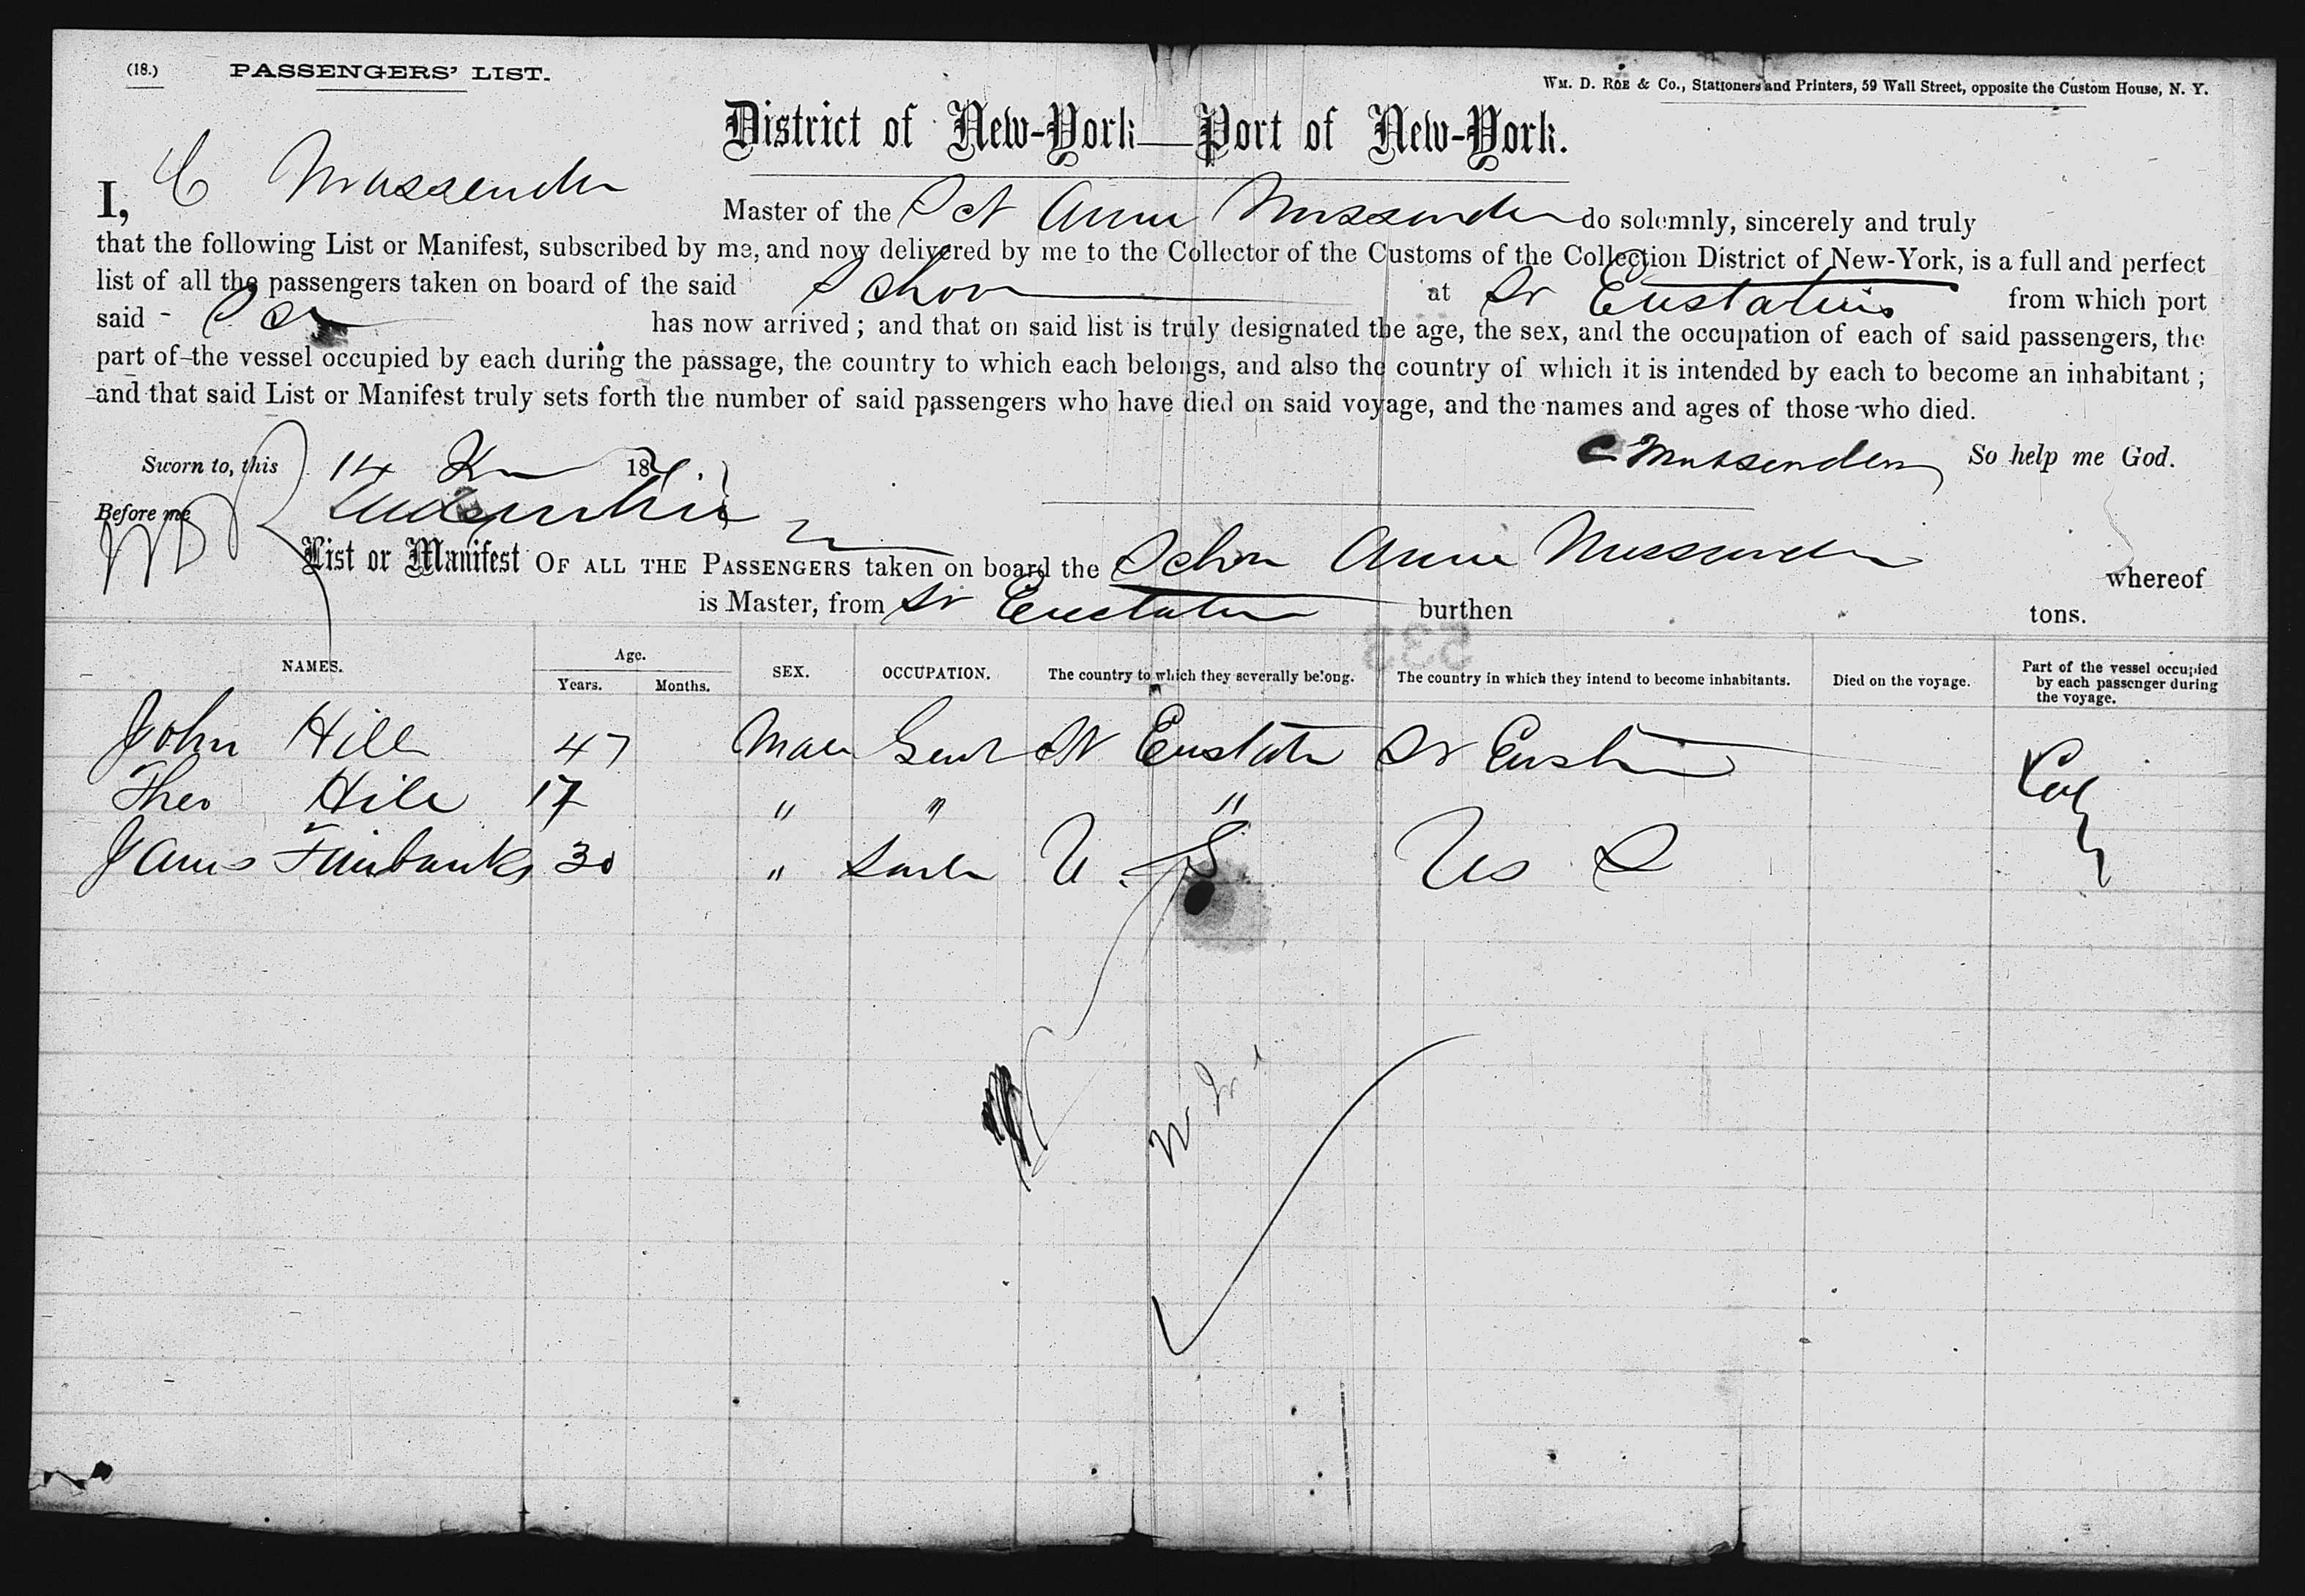 (18.) PASSENGERS' LIST.
WM. D. ROE & Co., Stationers and Printers, 59 Wall Street, opposite the Custom House, N. Y.
District of New-York—Port of New-York.
I, C Mussenden Master of the Sch Annie Mussenden do solemnly, sincerely and truly
that the following List or Manifest, subscribed by me, and now delivered by me to the Collector of the Customs of the Collection District of New-York, is a full and perfect
list of all the passengers taken on board of the said Schon at St Eustatius from which port
said has now arrived; and that on said list is truly designated the age, the sex, and the occupation of each of said passengers, the
part of the vessel occupied by each during the passage, the country to which each belongs, and also the country of which it is intended by each to become an inhabitant;
and that said List or Manifest truly sets forth the number of said passengers who have died on said voyage, and the names and ages of those who died.
Sworn to, this 14 18 C Mussenden So help me God.
Before me
List or Manifest OF ALL THE PASSENGERS taken on board the Schon Annie Mussenden whereof
is Master, from St Eustatia burthen tons.
533
NAMES. Age. Years. Months. SEX. OCCUPATION. The country to which they severally belong. The country in which they intend to become inhabitants. Died on the voyage. Part of the vessel occupied by each passenger during the voyage.
John Hill 47 Male Gent St Eustatia St Eust
Theo Hill 17 " " "
James Fairbanks 30 " U.S Us S